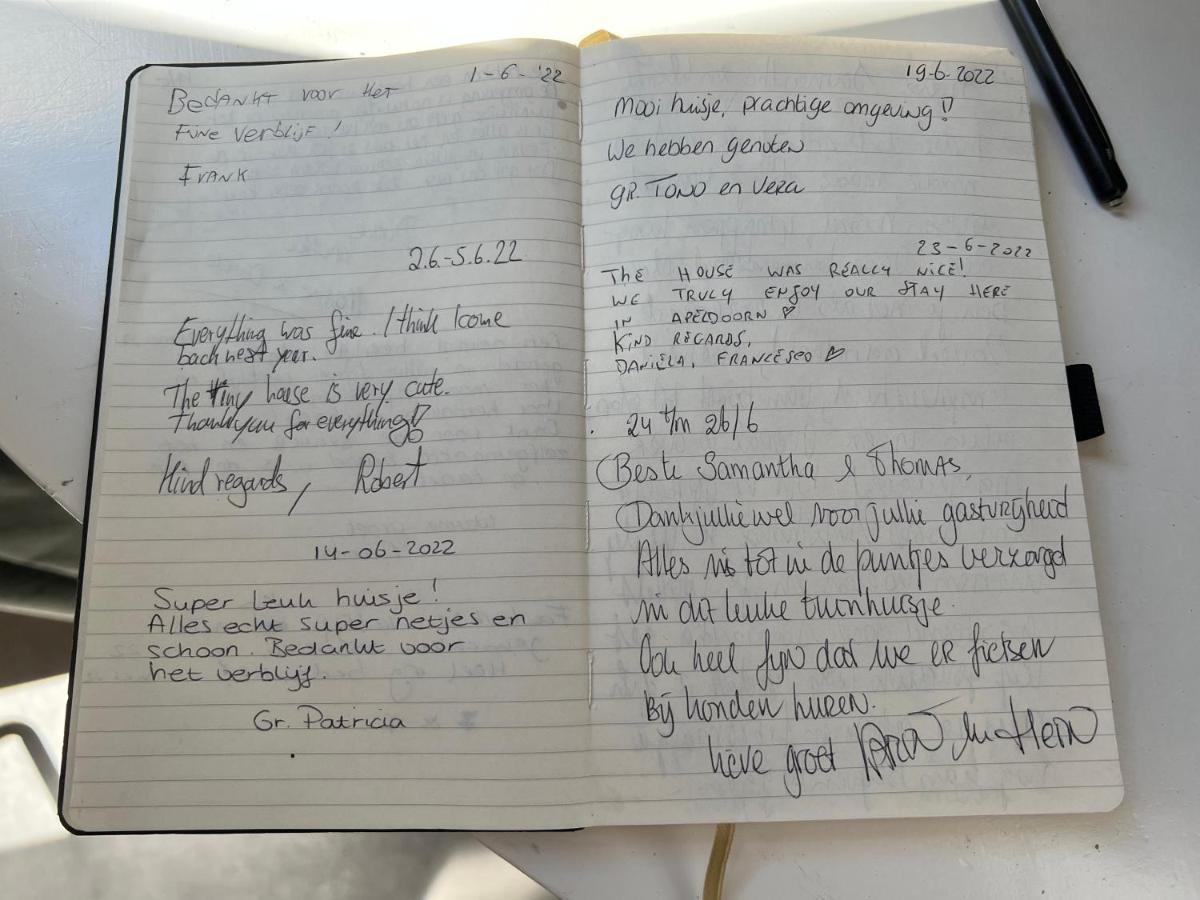 1-6-'22
Bedankt voor het
Fijne verblijf!
Frank
2.6.-5.6.22
Everything was fine. I think I come
back next year.
The tiny house is very cute.
Thank you for everything!
Kind regards, Robert
14-06-2022
Super leuk huisje!
Alles echt super netjes en
schoon. Bedankt voor
het verblijf.
Gr. Patricia
19-6-2022
Mooi huisje, prachtige omgeving!
We hebben genoten
gr. Tono en Vera
23-6-2022
THE HOUSE WAS REALLY NICE!
WE TRULY ENJOY OUR STAY HERE
IN APELDOORN ♡
KIND REGARDS,
DANIELA, FRANCESCO ♡
24 t/m 26/6
Beste Samantha & Thomas,
Dank jullie wel voor jullie gastvrijheid
Alles is tot in de puntjes verzorgd
in dat leuke tuinhuisje.
Ook heel fijn dat we er fietsen
Bij konden huren.
lieve groet